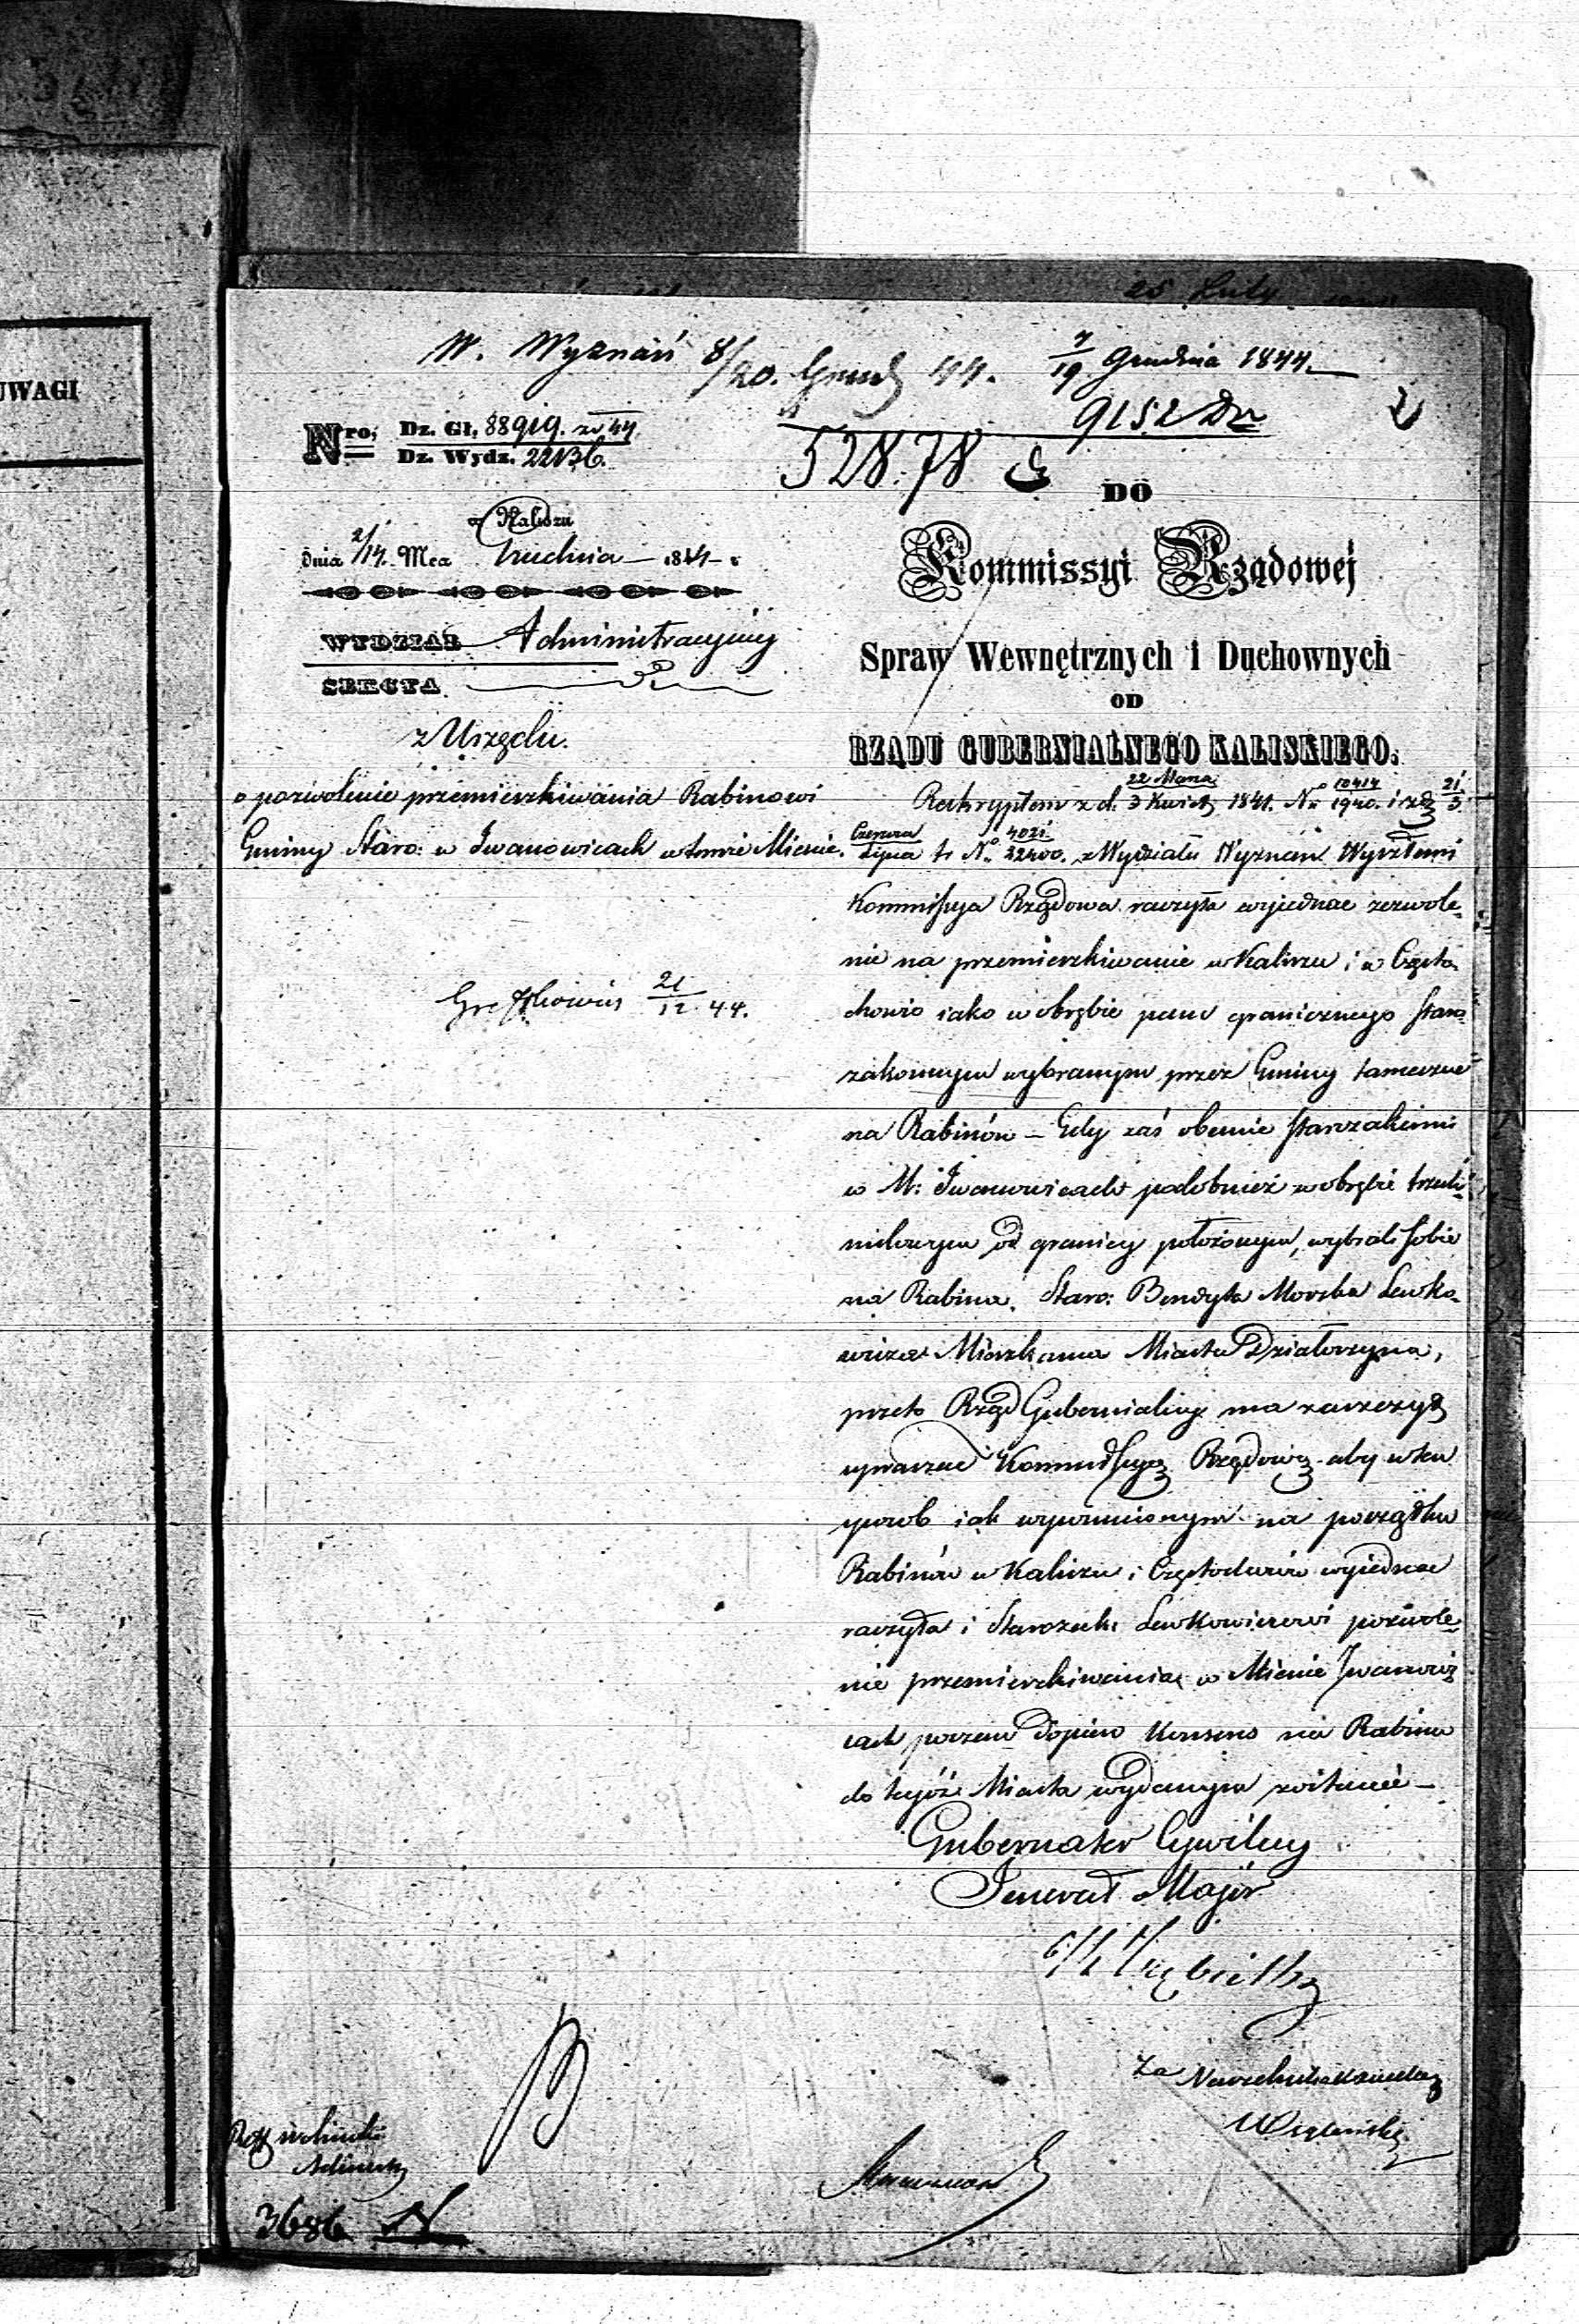 UWAGI
25 Luty
W. Wyznań 8/20. Grud 44.
7/19 Grudnia 1844.
9152
52878
Nro; Dz. Gł. 88919. 44
Dz. Wydz. 22136.
w Kaliszu
dnia 2/14. Mca Grudnia 1844 r.
WYDZIAŁ Administracyjny
SEKCYA
z Urzędu.
o pozwolenie przemieszkiwania Rabinowi
Gminy Staro: w Iwanowicach w temże Mieście.
21/12 44.
DO
Kommissyi Rządowej
Spraw Wewnętrznych i Duchownych
OD
RZĄDU GUBERNIALNEGO KALISKIEGO.
Reskryptem z d. 22 Marca/3 Kwiet 1841. No 10414/1940. i z d 21/3
Czerwca/Lipca No 4021/32400. z Wydziału Wyznań
Kommissya Rządowa raczyła wyjednać zezwole-
nie na przemieszkiwanie w Kaliszu i w Często-
chowie iako w obrębie pasu granicznego Staro-
zakonnym wybranym przez Gminy tameczne
na Rabinów – Gdy zaś obecnie Starozakonni
w M: Iwanowicach podobnież w obrębie trzech
milowym od granicy położonym, wybrali sobie
na Rabina. Staro: Bendyta Moszka Lewko-
wicza Mieszkańca Miasta Działoszyna,
przeto Rząd Gubernialny ma zaszczyt
upraszać Kommissyę Rządową aby w ten
sposób iak wspomnionym na początku
Rabinów w Kaliszu i Częstochowie wyjednać
raczyła i Starozak: Lewkowiczowi pozwole-
nie przemieszkiwania w Mieście Iwanowi-
cach poczem dopiero Konsens na Rabina
do tegóż Miasta wydanym zostanie –
Gubernator Cywilny
Jenerał Major
Za Naczelnika Kancellaryi
3686